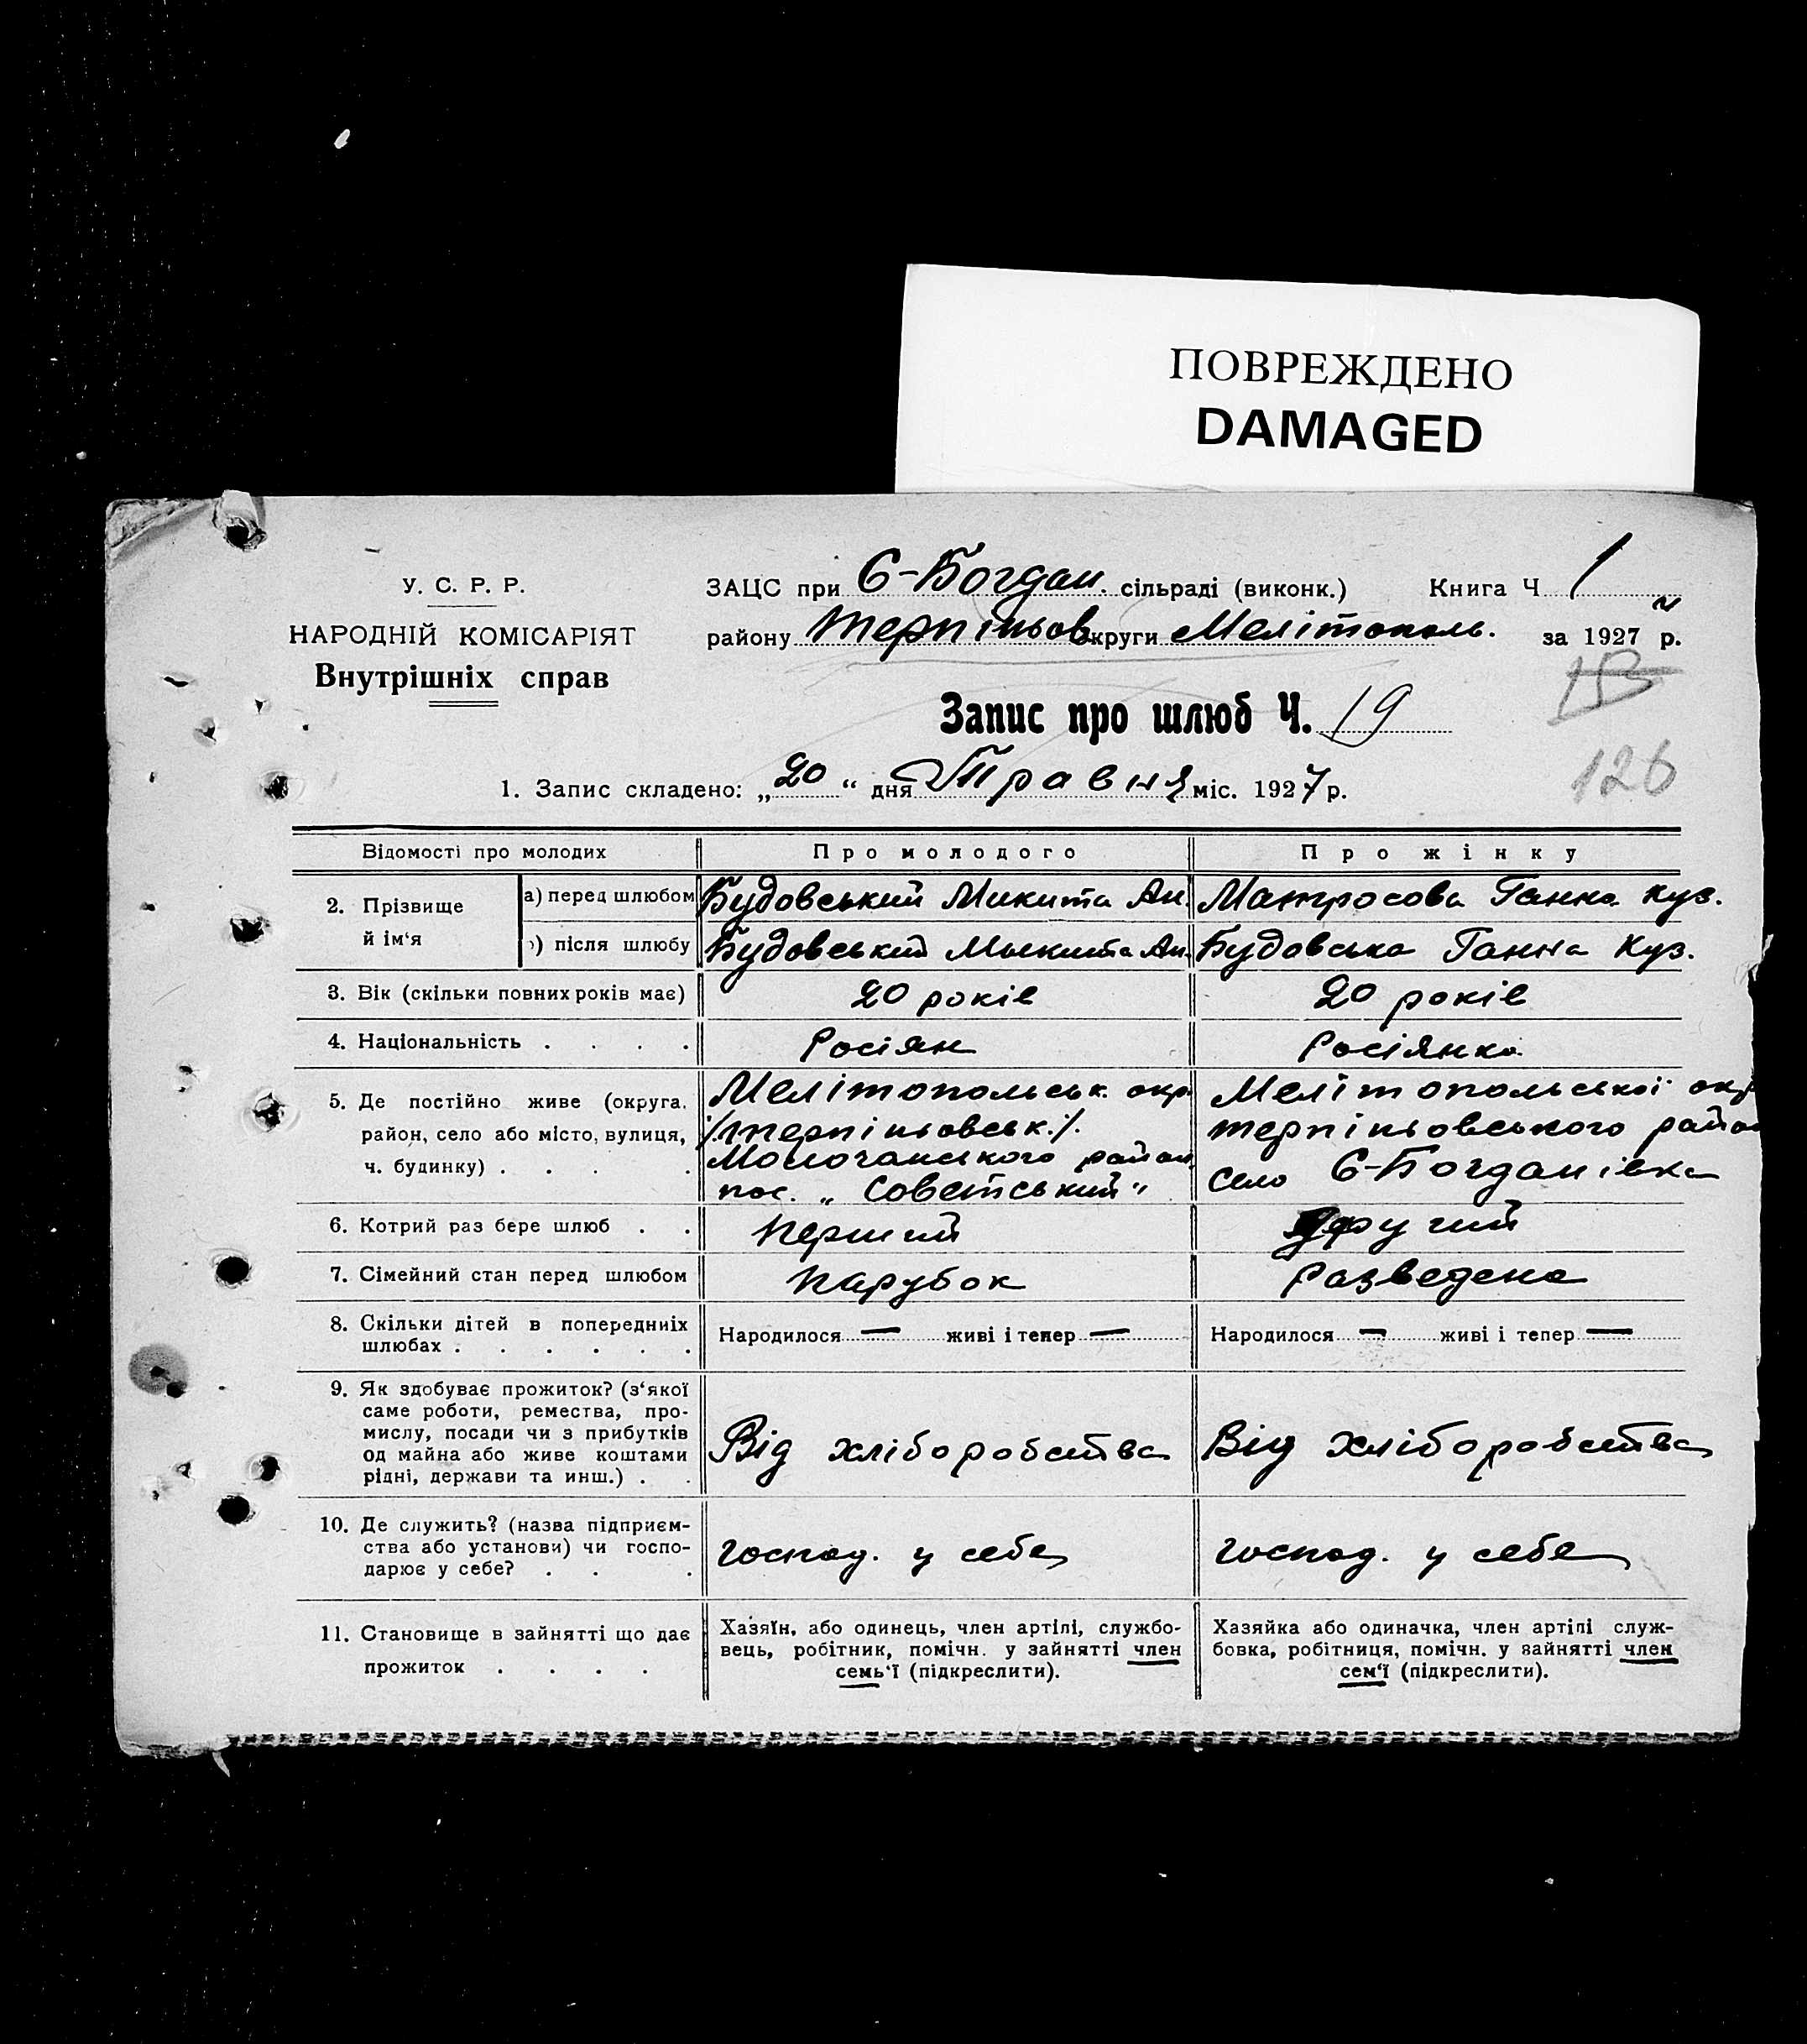 ПОВРЕЖДЕНО
DAMAGED
У. С. Р. Р.
НАРОДНІЙ КОМІСАРІЯТ
Внутрішніх справ
ЗАЦС при Є-Богдан. сільраді (виконк.) Книга Ч 1
району Терпіньов округи Мелітополь. за 1927 р.
Запис про шлюб Ч. 19
126
1. Запис складено: „20“ дня Травня міс. 1927 р.
Відомості про молодих Про молодого Про жінку
2. Прізвище й ім‘я
а) перед шлюбом Будовський Микита Ан. Матросова Ганна Куз.
) після шлюбу Будовський Микита Ан. Будовська Ганна Куз.
3. Вік (скільки повних років має) 20 років 20 років
4. Національність . . . . Росіян Росіянка
5. Де постійно живе (округа, район, село або місто, вулиця, ч. будинку) . . . .
Мелітопольськ. окр.
/Терпіньовськ./.
Молочанського район.
пос. „Совєтський“
Мелітопольської окр
Терпіньовського район
село Є-Богданівка
6. Котрий раз бере шлюб . . Перший Другий
7. Сімейний стан перед шлюбом Парубок Разведена
8. Скільки дітей в попередниіх шлюбах . . . . . .
Народилося — живі і тепер —
Народилося — живі і тепер —
9. Як здобуває прожиток? (з‘якої
саме роботи, ремества, про-
мислу, посади чи з прибутків
од майна або живе коштами
рідні, держави та инш.) . .
Від хліборобства
Від хліборобства
10. Де служить? (назва підприєм-
ства або установи) чи госпо-
дарює у себе? . . .
господ. у себе
господ. у себе
11. Становище в зайнятті що дає
прожиток . . . .
Хазяїн, або одинець, член артілі, службо-
вець, робітник, помічн. у зайнятті член
семь‘ї (підкреслити).
Хазяйка або одиначка, член артілі служ-
бовка, робітниця, помічн. у зайнятті член
сем‘ї (підкреслити).